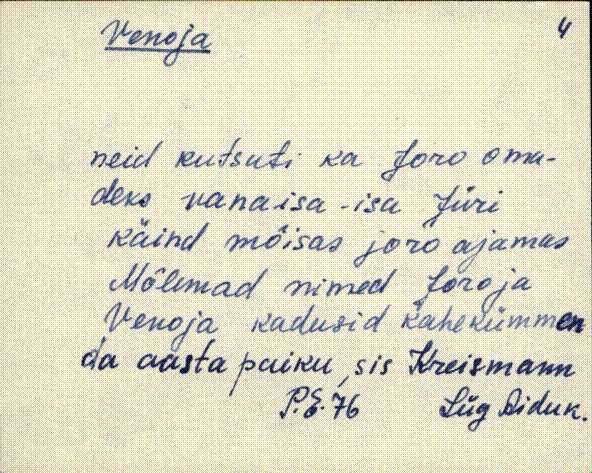 Venoja
4
neid kutsuti ka Joro oma-
deks vanaisa-isa Jüri
käind mõisas joro ajamas
Mõlemad nimed Joro ja
Venoja kadusid kahekümmen
da aasta paiku, sis Kreismann
P.E. 76 Lüg Aiduk.